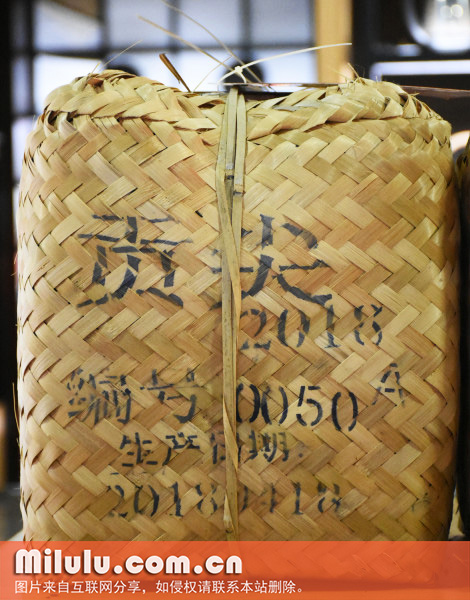 贡尖
2018
编号 0050 A
生产日期:
20180418
Milulu.com.cn
图片来自互联网分享，如侵权请联系本站删除。